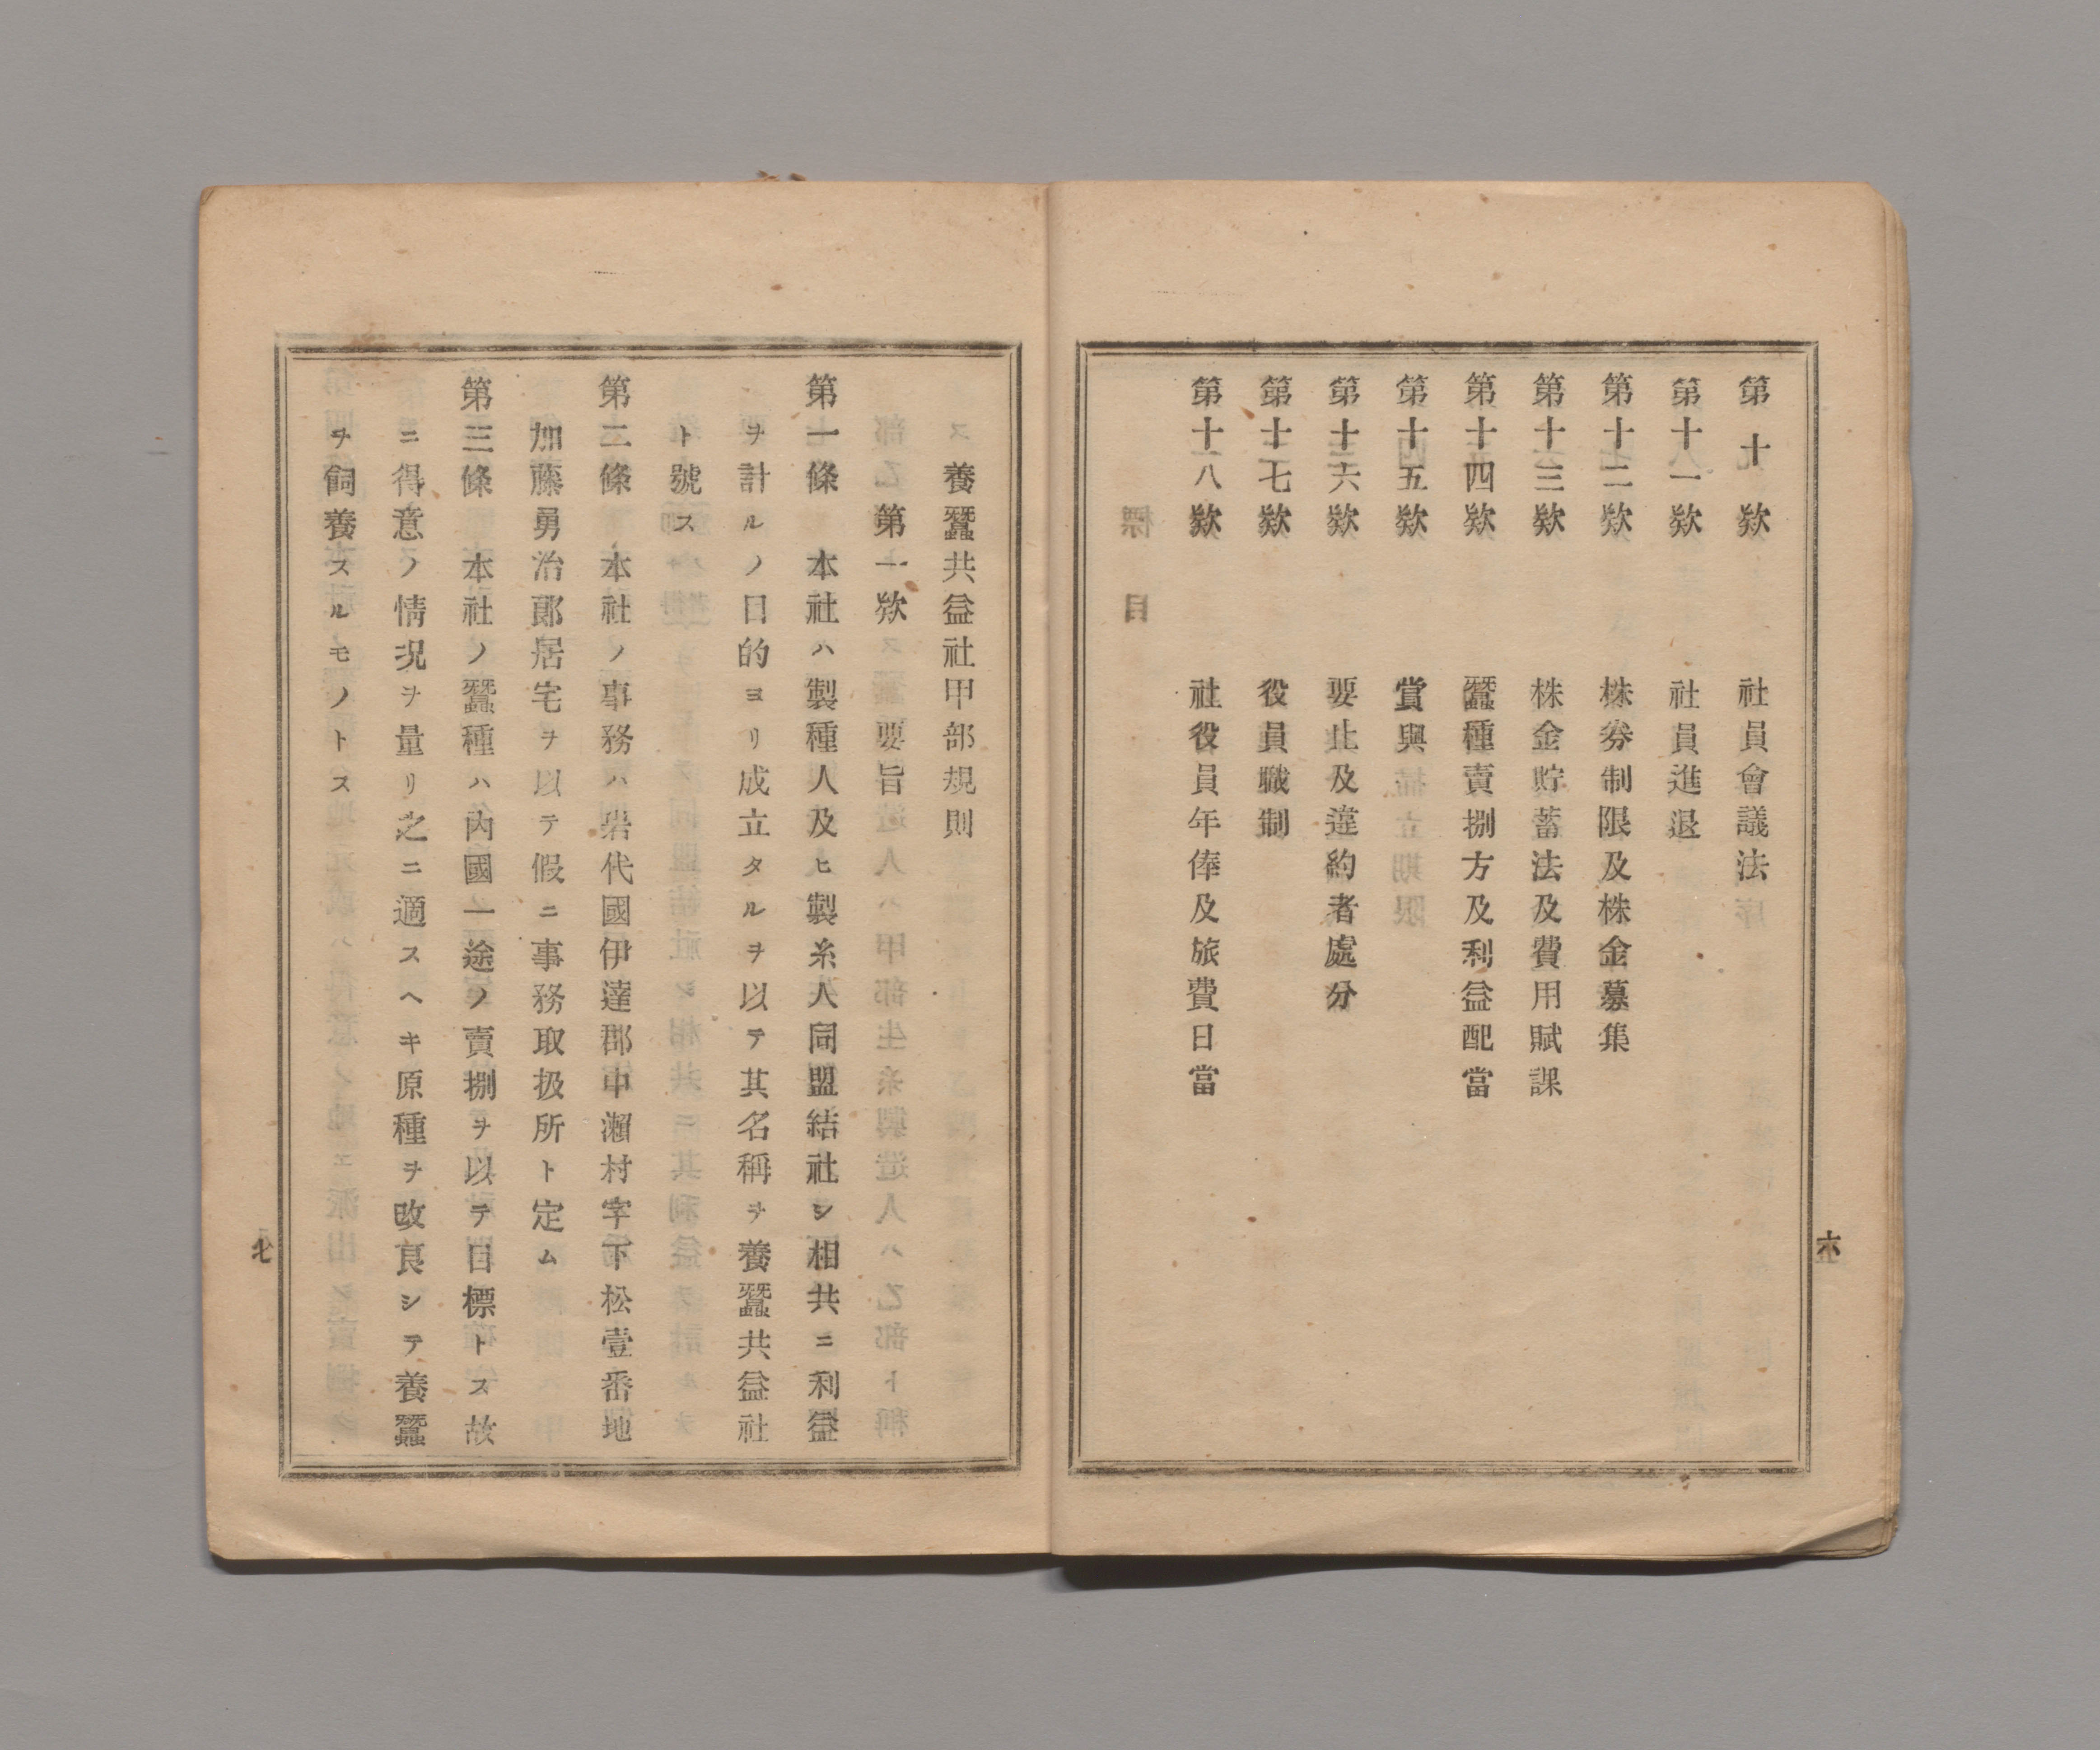 第十欵 社員會議法
第十一欵 社員進退
第十二欵 株券制限及株金募集
第十三欵 株金貯蓄法及費用賦課
第十四欵 蠶種賣捌方及利益配當
第十五欵 賞與
第十六欵 要止及違約者處分
第十七欵 役員職制
第十八欵 社役員年俸及旅費日當
六
養蠶共益社甲部規則
第一欵 要旨
第一條 本社ハ製種人及ヒ製糸人同盟結社シ相共ニ利益
ヲ計ルノ目的ヨリ成立タルヲ以テ其名稱ヲ養蠶共益社
ト號ス
第二條 本社ノ事務ハ岩代國伊達郡中瀬村字下松壹番地
加藤勇治郎居宅ヲ以テ假ニ事務取扱所ト定ム
第三條 本社ノ蠶種ハ內國一途ノ賣捌ヲ以テ目標トス故
ニ得意ノ情況ヲ量リ之ニ適スヘキ原種ヲ改良シテ養蠶
ヲ飼養スルモノトス
七